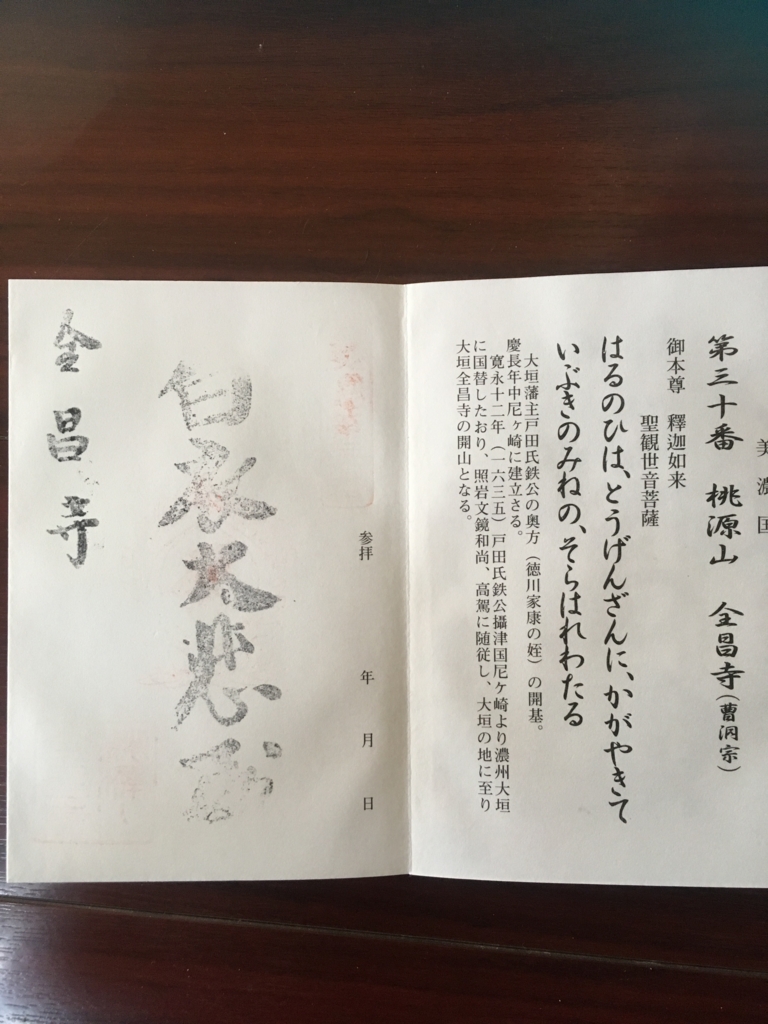 美濃国
第三十番 桃源山 全昌寺(曹洞宗)
御本尊 釋迦如来
聖観世音菩薩
はるのひは、とうげんざんに、かがやきて
いぶきのみねの、そらはれわたる
大垣藩主戸田氏鉄公の奥方(徳川家康の姪)の開基。
慶長年中尼ヶ崎に建立さる。
寛永十二年(一六三五)戸田氏鉄公攝津国尼ヶ崎より濃州大垣
に国替したおり、照岩文鏡和尚、高駕に随従し、大垣の地に至り
大垣全昌寺の開山となる。
参拝 年 月 日
白衣大悲
全昌寺